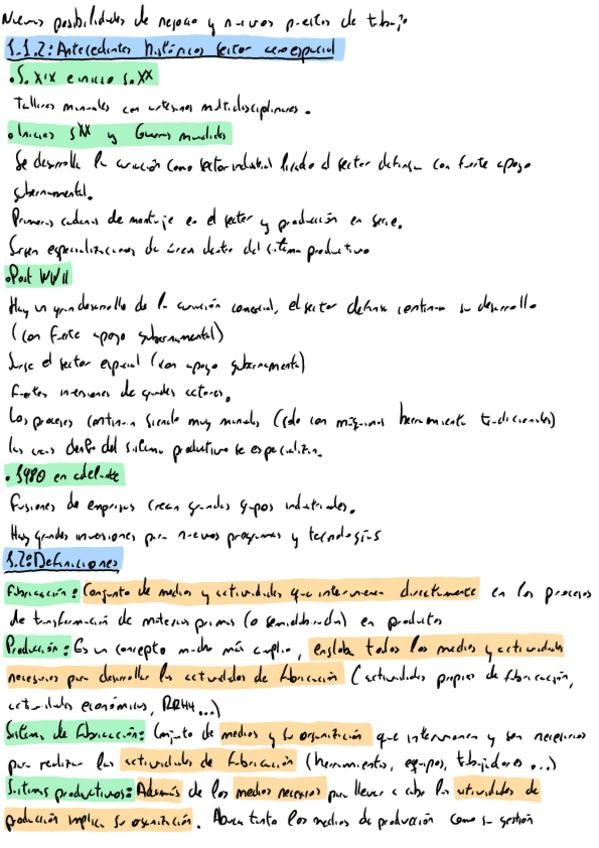 Nuevas posibilidades de negocio y nuevos puestos de trabajo
1.1.2: Antecedentes históricos sector aeroespacial
• S. XIX e inicio S. XX
Talleres manuales con artesanos multidisciplinares.
• Inicios S XX y Guerras mundiales
Se desarrolla la aviación como sector industrial ligado al sector defensa con fuerte apoyo
gubernamental.
Primeras cadenas de montaje en el sector y producción en serie.
Surgen especializaciones de área dentro del sistema productivo
• Post WWII
Hay un gran desarrollo de la aviación comercial, el sector defensa continua su desarrollo
(con fuerte apoyo gubernamental)
Surge el sector espacial (con apoyo gubernamental)
Fuertes inversiones de grandes actores.
Los procesos continuan siendo muy manuales (solo con máquinas herramienta tradicionales)
Las areas dentro del sistema productivo se especializan.
• 1980 en adelante
Fusiones de empresas crean grandes grupos industriales.
Hay grandes inversiones para nuevos programas y tecnologías
1.2: Definiciones
Fabricación: Conjunto de medios y actividades que intervienen directamente en los procesos
de transformación de materias primas (o semielaboradas) en productos
Producción: Es un concepto mucho más amplio, engloba todos los medios y actividades
necesarios para desarrollar las actividades de fabricación (actividades propias de fabricación,
actividades económicas, RRHH...)
Sistema de fabricación: Conjunto de medios y su organización que intervienen y son necesarios
para realizar las actividades de fabricación (herramientas, equipos, trabajadores...)
Sistemas productivos: Además de los medios necesarios para llevar a cabo las actividades de
producción implica su organización. Abarca tanto los medios de producción como su gestión